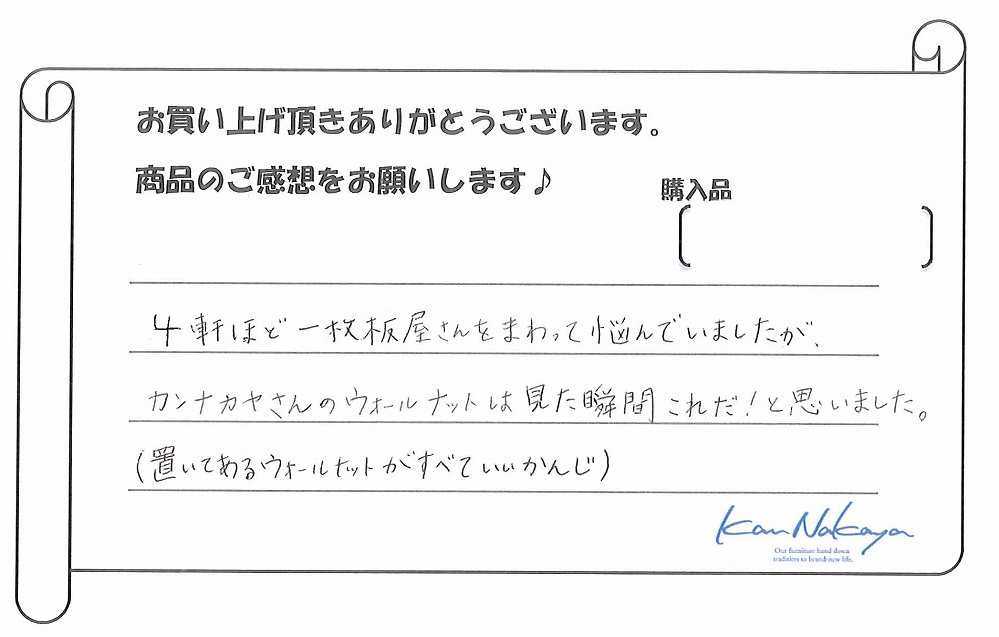 お買い上げ頂きありがとうございます。
商品のご感想をお願いします♪
購入品
4軒ほど一枚板屋さんをまわって悩んでいましたが、
カンナカヤさんのウォールナットは見た瞬間これだ!と思いました。
(置いてあるウォールナットがすべていいかんじ)
KanNakaya
Our furniture hand down
tradition to brand-new life.